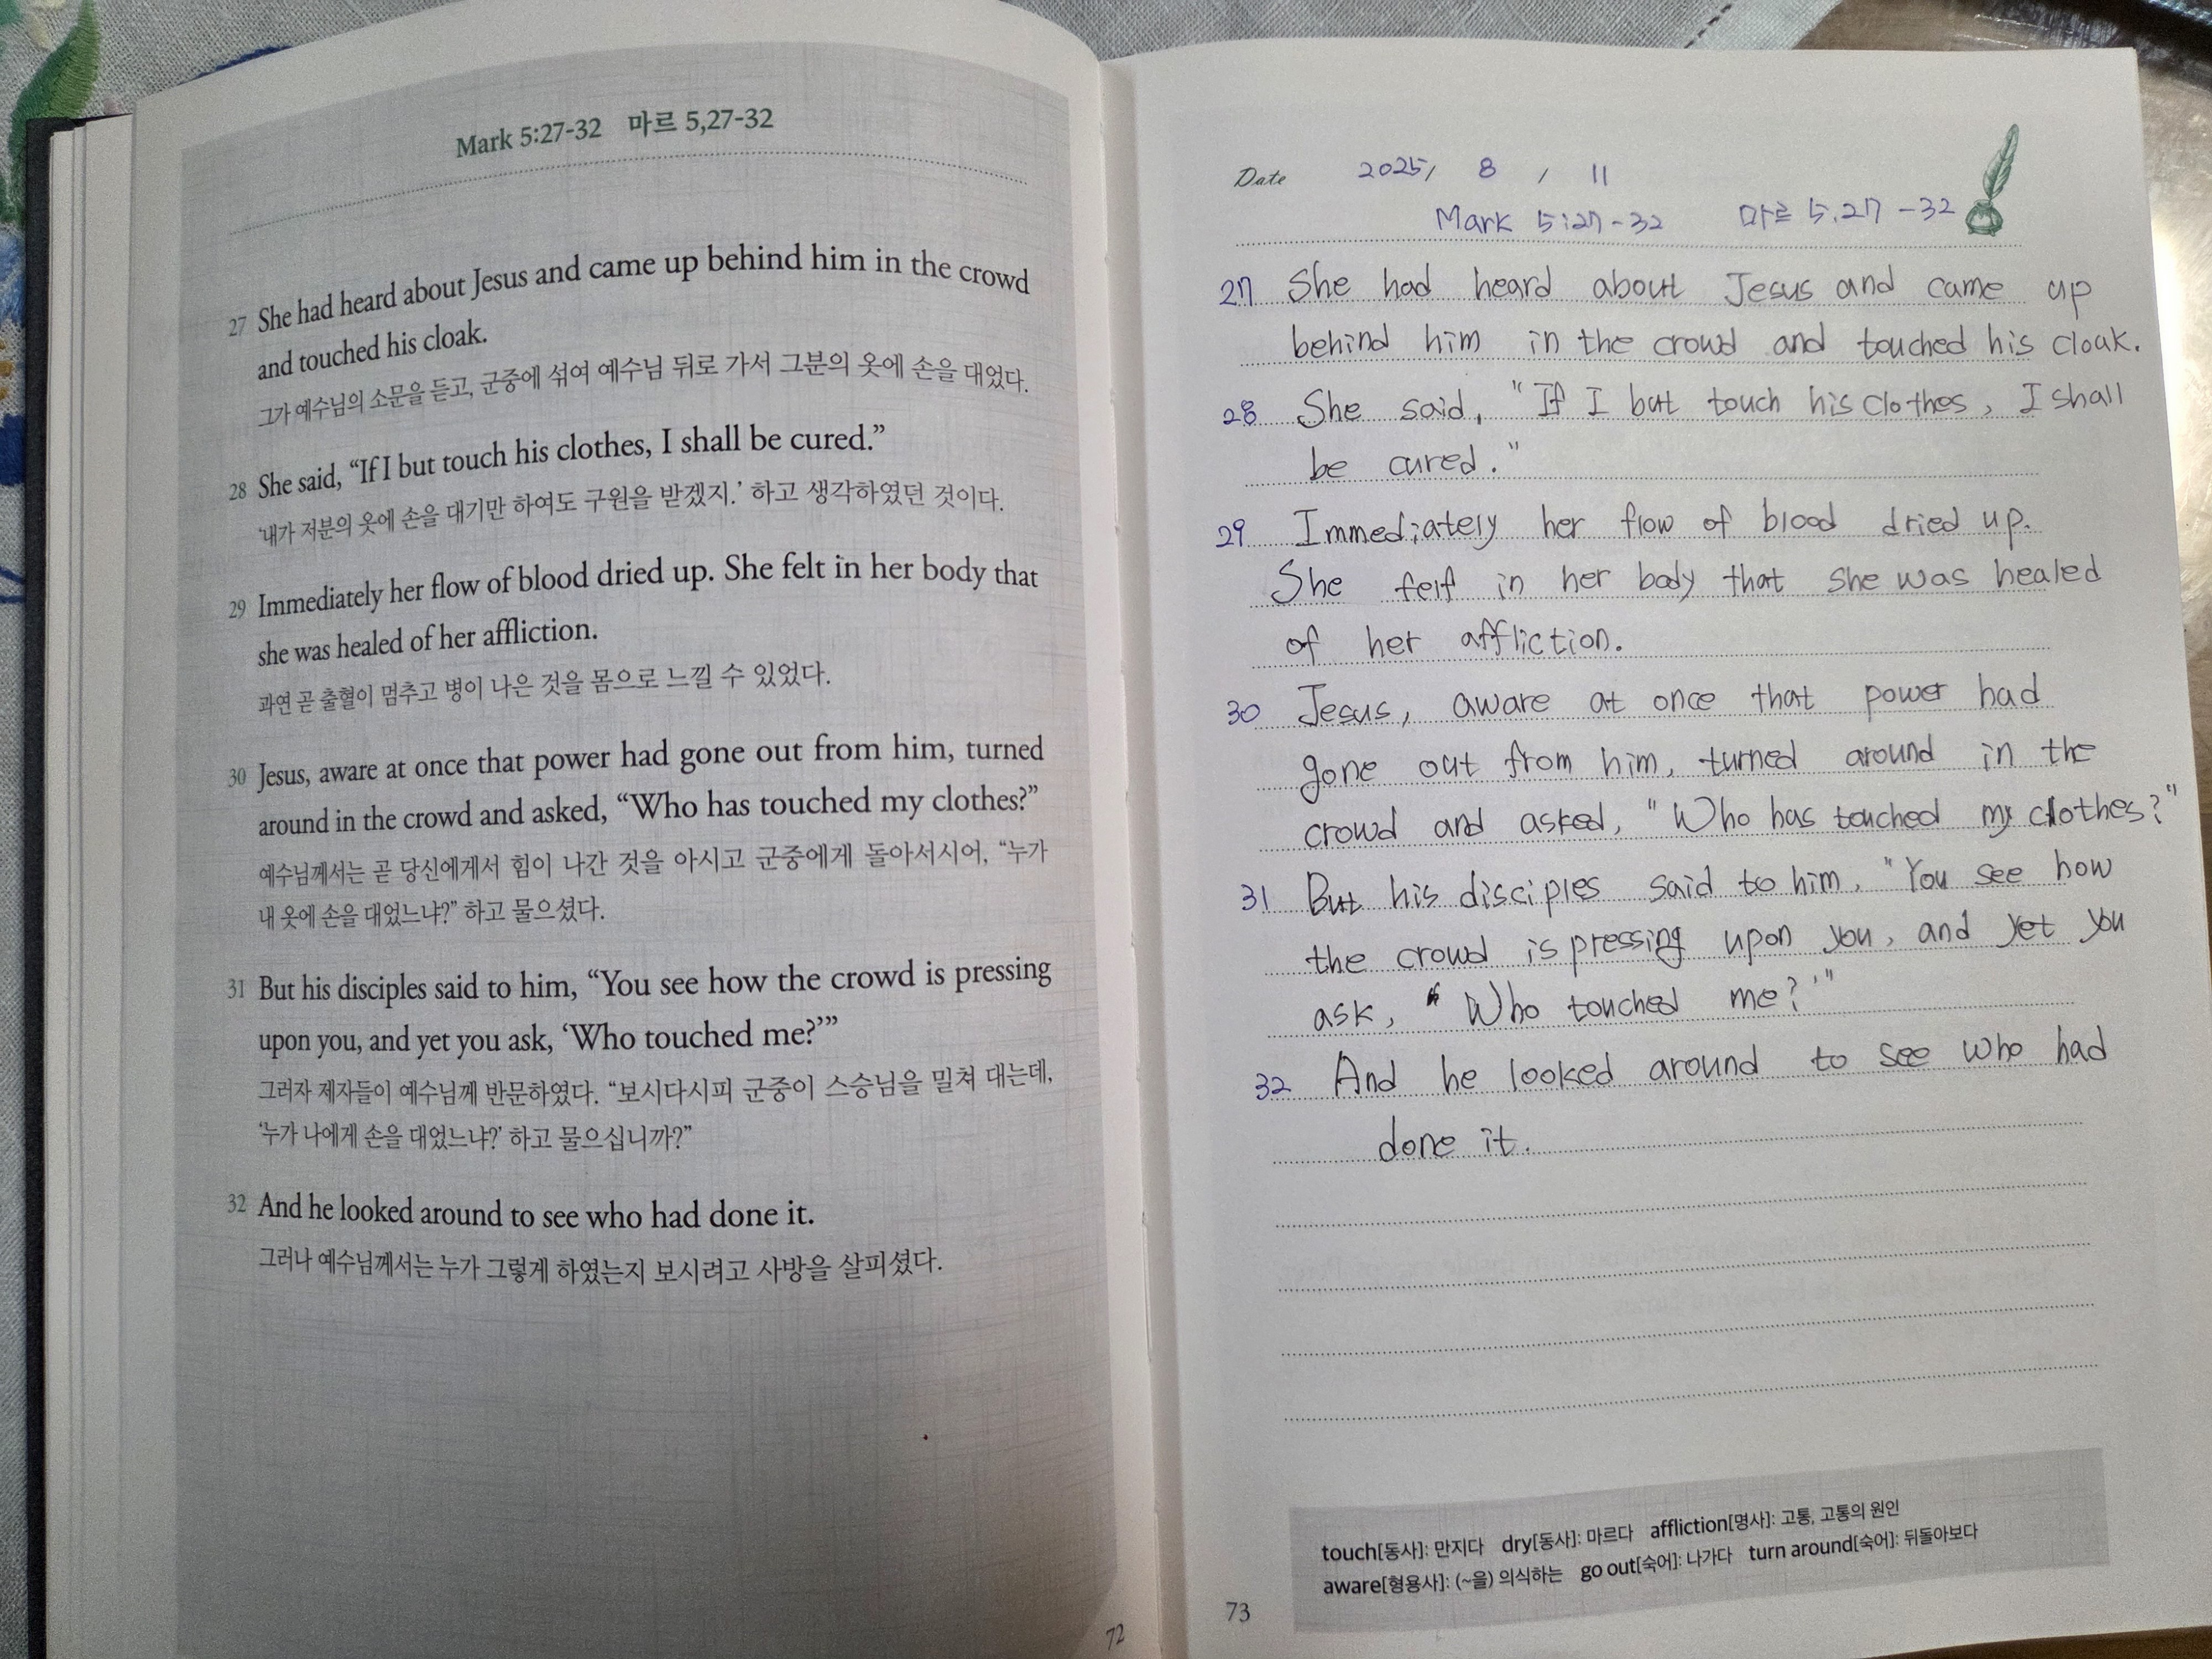 Mark 5:27-32 마르 5,27-32
27 She had heard about Jesus and came up behind him in the crowd
and touched his cloak.
그가 예수님의 소문을 듣고, 군중에 섞여 예수님 뒤로 가서 그분의 옷에 손을 대었다.
28 She said, “If I but touch his clothes, I shall be cured.”
‘내가 저분의 옷에 손을 대기만 하여도 구원을 받겠지.’ 하고 생각하였던 것이다.
29 Immediately her flow of blood dried up. She felt in her body that
she was healed of her affliction.
과연 곧 출혈이 멈추고 병이 나은 것을 몸으로 느낄 수 있었다.
30 Jesus, aware at once that power had gone out from him, turned
around in the crowd and asked, “Who has touched my clothes?”
예수님께서는 곧 당신에게서 힘이 나간 것을 아시고 군중에게 돌아서시어, “누가
내 옷에 손을 대었느냐?” 하고 물으셨다.
31 But his disciples said to him, “You see how the crowd is pressing
upon you, and yet you ask, ‘Who touched me?’”
그러자 제자들이 예수님께 반문하였다. “보시다시피 군중이 스승님을 밀쳐 대는데,
‘누가 나에게 손을 대었느냐?’ 하고 물으십니까?”
32 And he looked around to see who had done it.
그러나 예수님께서는 누가 그렇게 하였는지 보시려고 사방을 살피셨다.
72
Date 2025/ 8 / 11
Mark 5:27-32 마르 5.27-32
27 She had heard about Jesus and came up
behind him in the crowd and touched his cloak.
28 She said, "If I but touch his clothes, I shall
be cured."
29 Immediately her flow of blood dried up.
She felt in her body that she was healed
of her affliction.
30 Jesus, aware at once that power had
gone out from him, turned around in the
crowd and asked, "Who has touched my clothes?"
31 But his disciples said to him, "You see how
the crowd is pressing upon you, and yet you
ask, " Who touched me?'"
32 And he looked around to see who had
done it.
touch[동사]: 만지다 dry[동사]: 마르다 affliction[명사]: 고통, 고통의 원인
aware[형용사]: (~을) 의식하는 go out[숙어]: 나가다 turn around[숙어]: 뒤돌아보다
73